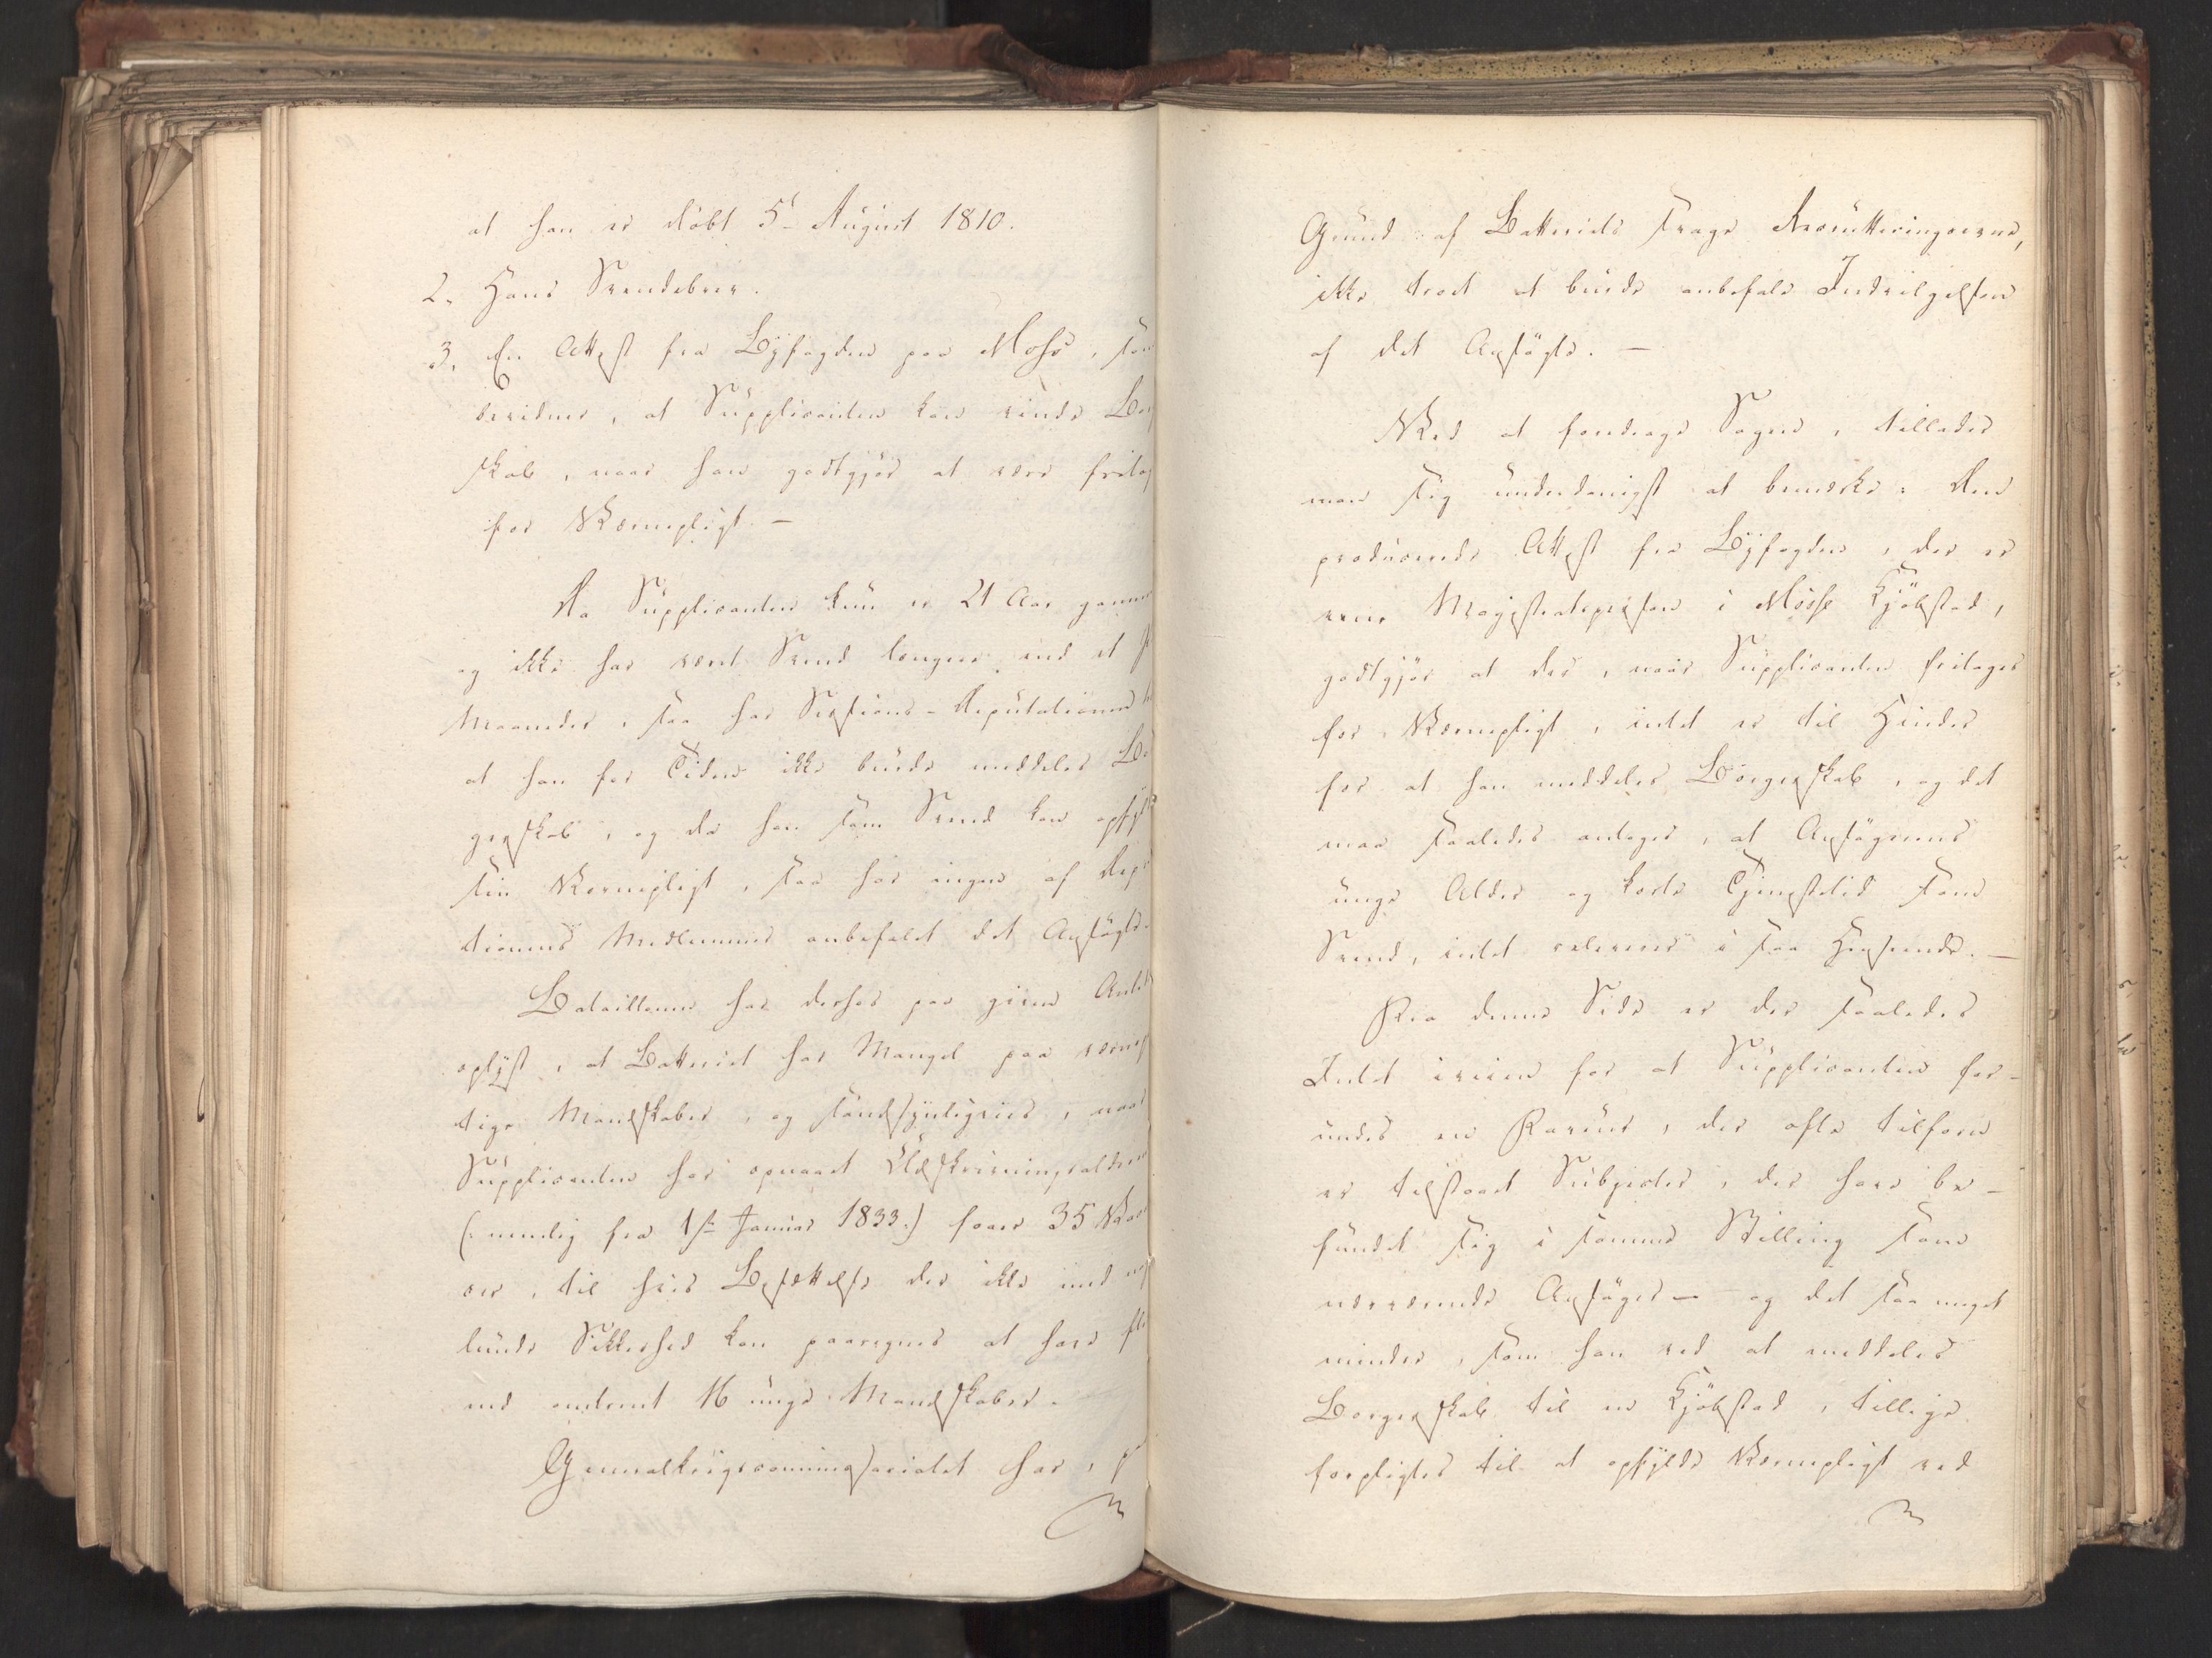 at han er döbt 5t August 1810.
2. Hans Svendebrev.
3. En Attest fra Byfogden paa Moss, som
bevidner, at Supplicanten kan vinde Bor
skab, naar han godtgjör at være fritag
for Værnepligt. —
Da Supplicanten kun er 21 Aar gamm
og ikke har været Svend længere end et P
Maaneder, saa har Sessions-Deputationen
at han for Tiden ikke burde meddeles Bor
gerskab, og da han som Svend kan opfyld
sin Værnepligt, saa har ingen af Depu
tionens Medlemmer anbefalet det Ansögte.
Bataillonen har derhos paa given Anled
oplyst, at Batteriet har Mangel paa værnep
tige Mandskaber, og sandsynligviis, naar
Supplicanten har opnaaet Udskrivningsalderen
(: nemlig fra 1ste Januar 1833.) faaer 35 Vacan
cer, til hvis Besættelse der ikke med no
lunde Sikkerhed kan paaregnes at have fle
end omtrent 16 unge Mandskaber.
Generalkrigscommissariatet har, p
Grund af Batteriets svage Recrutteringsevne,
ikke troet at burde anbefale Indvilgelsen
af det Ansögte. —
Ved at foredrage Sagen, tillader
man sig underdanigst at bemærke: Den
producerede Attest fra Byfogden, der er
ene Magistratsperson i Mosse Kjöbstad,
godtgjör at der, naar Supplicanten fritages
for Værnepligt, intet er til Hinder
for at han meddeles Borgerskab, og det
maa saaledes antages, at Ansögerens
unge Alder og korte Tjenestetid som
Svend, intet releverer i saa Henseende. —
Fra denne Side er der saaledes
Intet iveien for at Supplicanten for-
undes en Faveur, der ofte tilforn
er tilstaaet Subjecter, der have be-
fundet sig i samme Stilling som
nærværende Ansöger — og det saa meget
mindre, som han ved at meddeles
Borgerskab til en Kjöbstad, tillige
forpligtes til at opfylde Værnepligt ved